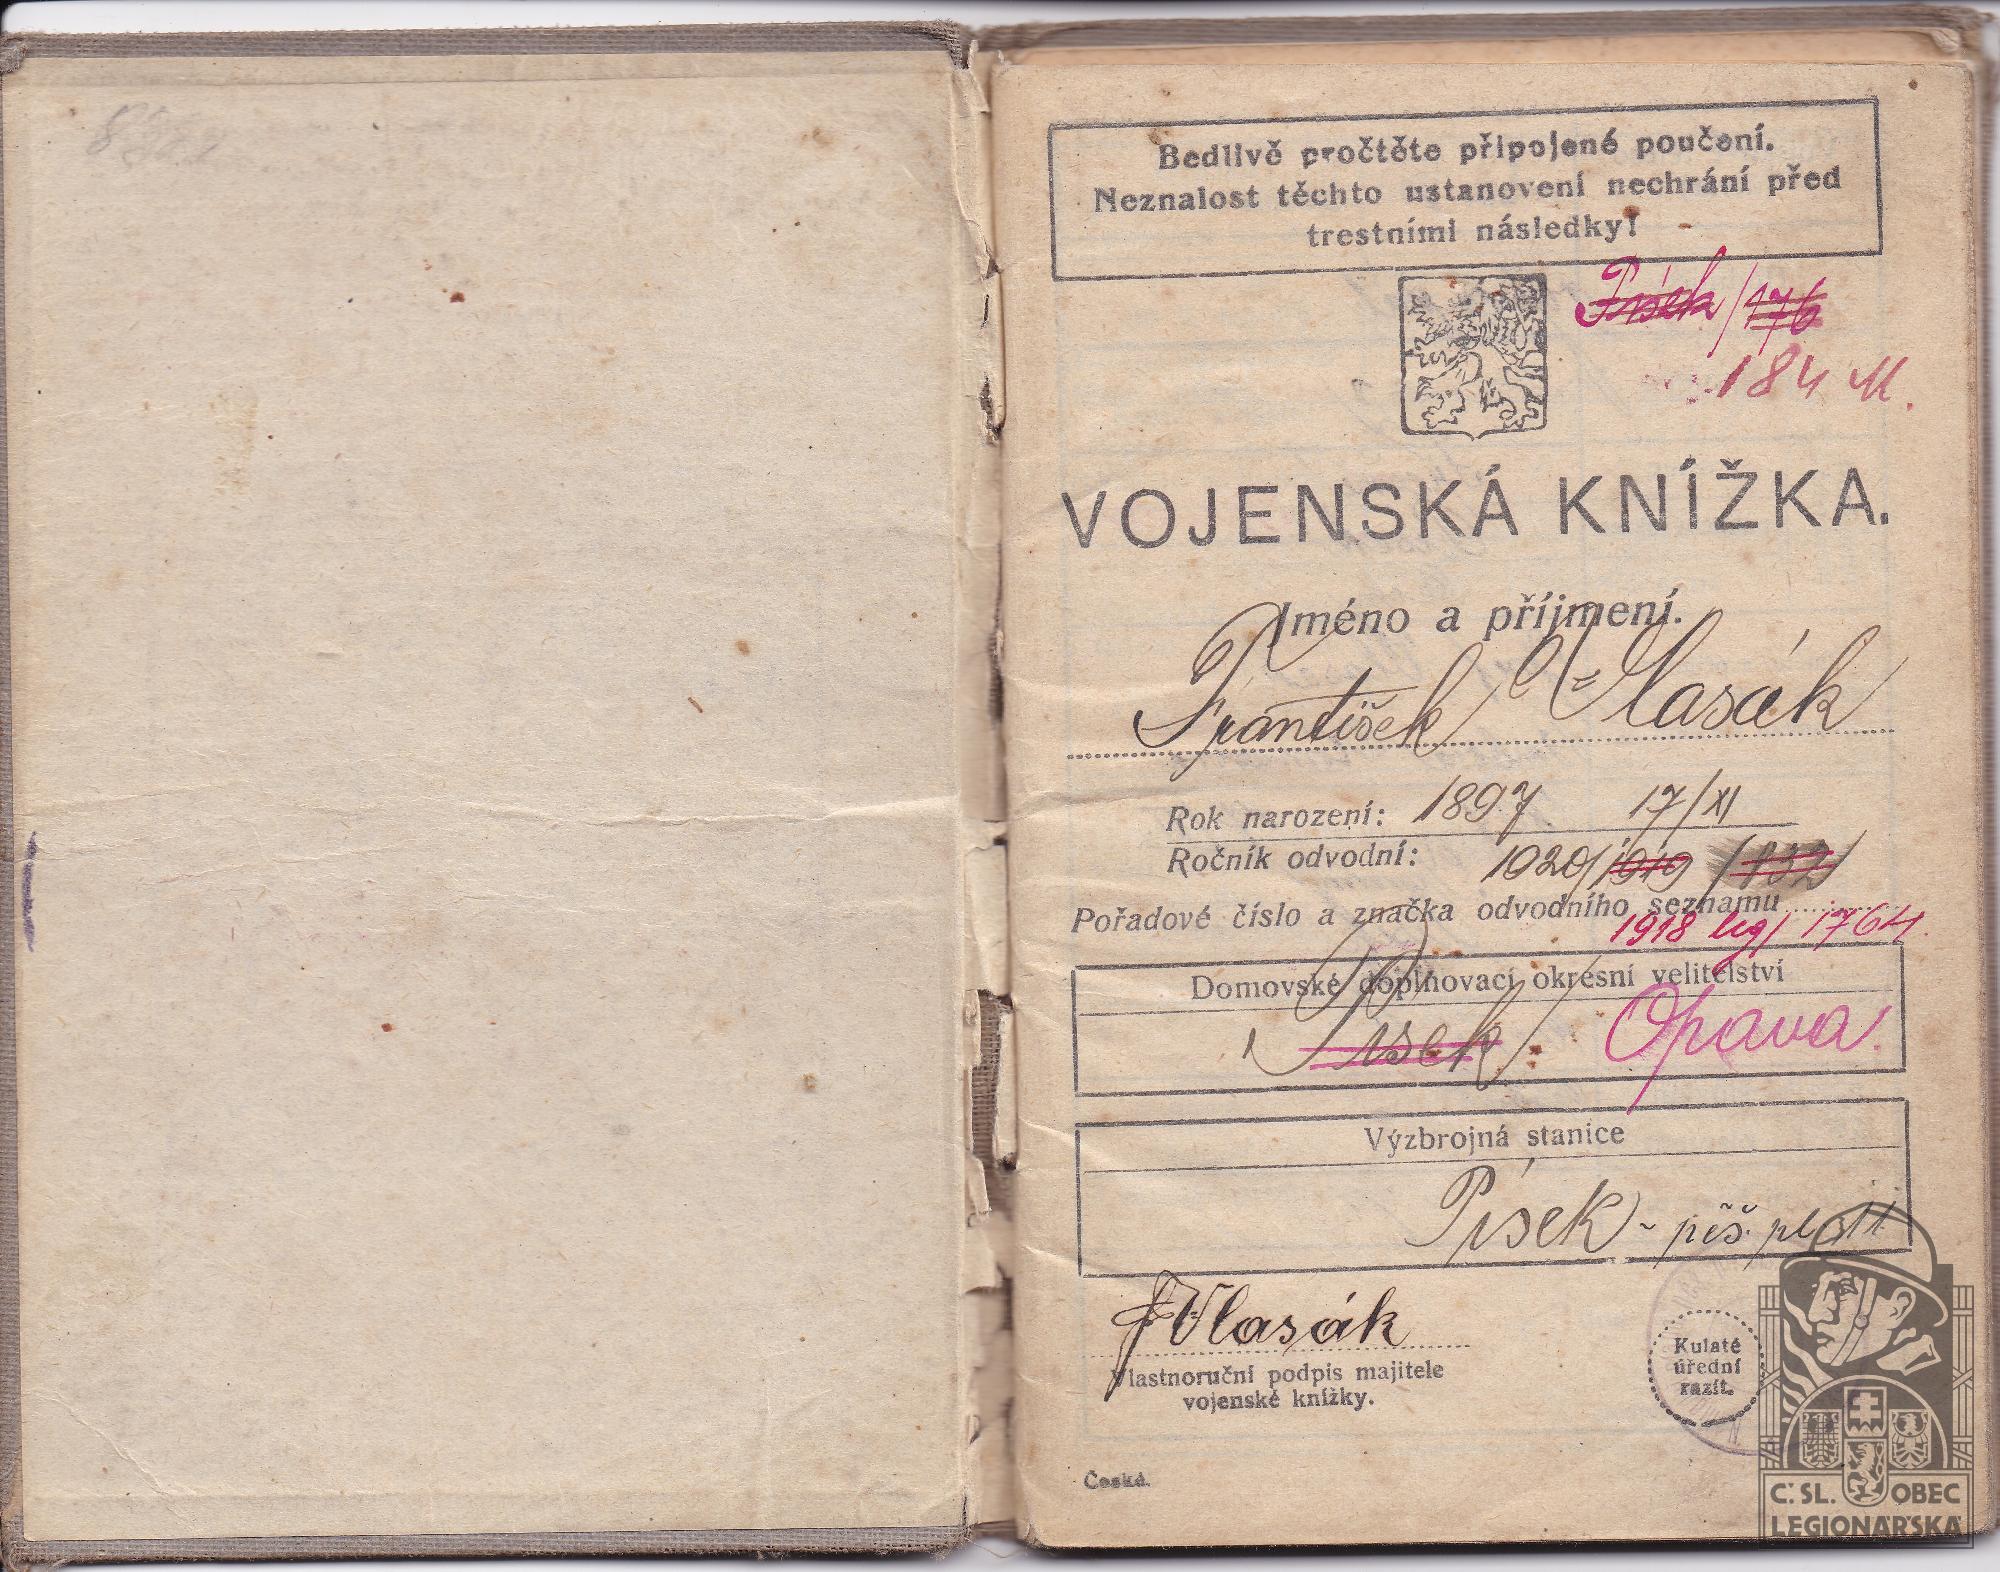 Bedlivě pročtěte připojené poučení.
Neznalost těchto ustanovení nechrání před
trestními následky!
Písek/176
184 M.
VOJENSKÁ KNÍŽKA.
Jméno a příjmení.
František Vlasák
Rok narození: 1897 17/XI
Ročník odvodní: 1920/1919 /132/
Pořadové číslo a značka odvodního seznamu
1918 leg/1764.
Domovské doplňovací okresní velitelství
Písek/ Opava.
Výzbrojná stanice
Písek - pěš. pl. 11
F Vlasák
Vlastnoruční podpis majitele
vojenské knížky.
Kulaté
úřední
razít.
Česká.
Č. SL. OBEC
LEGIONÁŘSKÁ